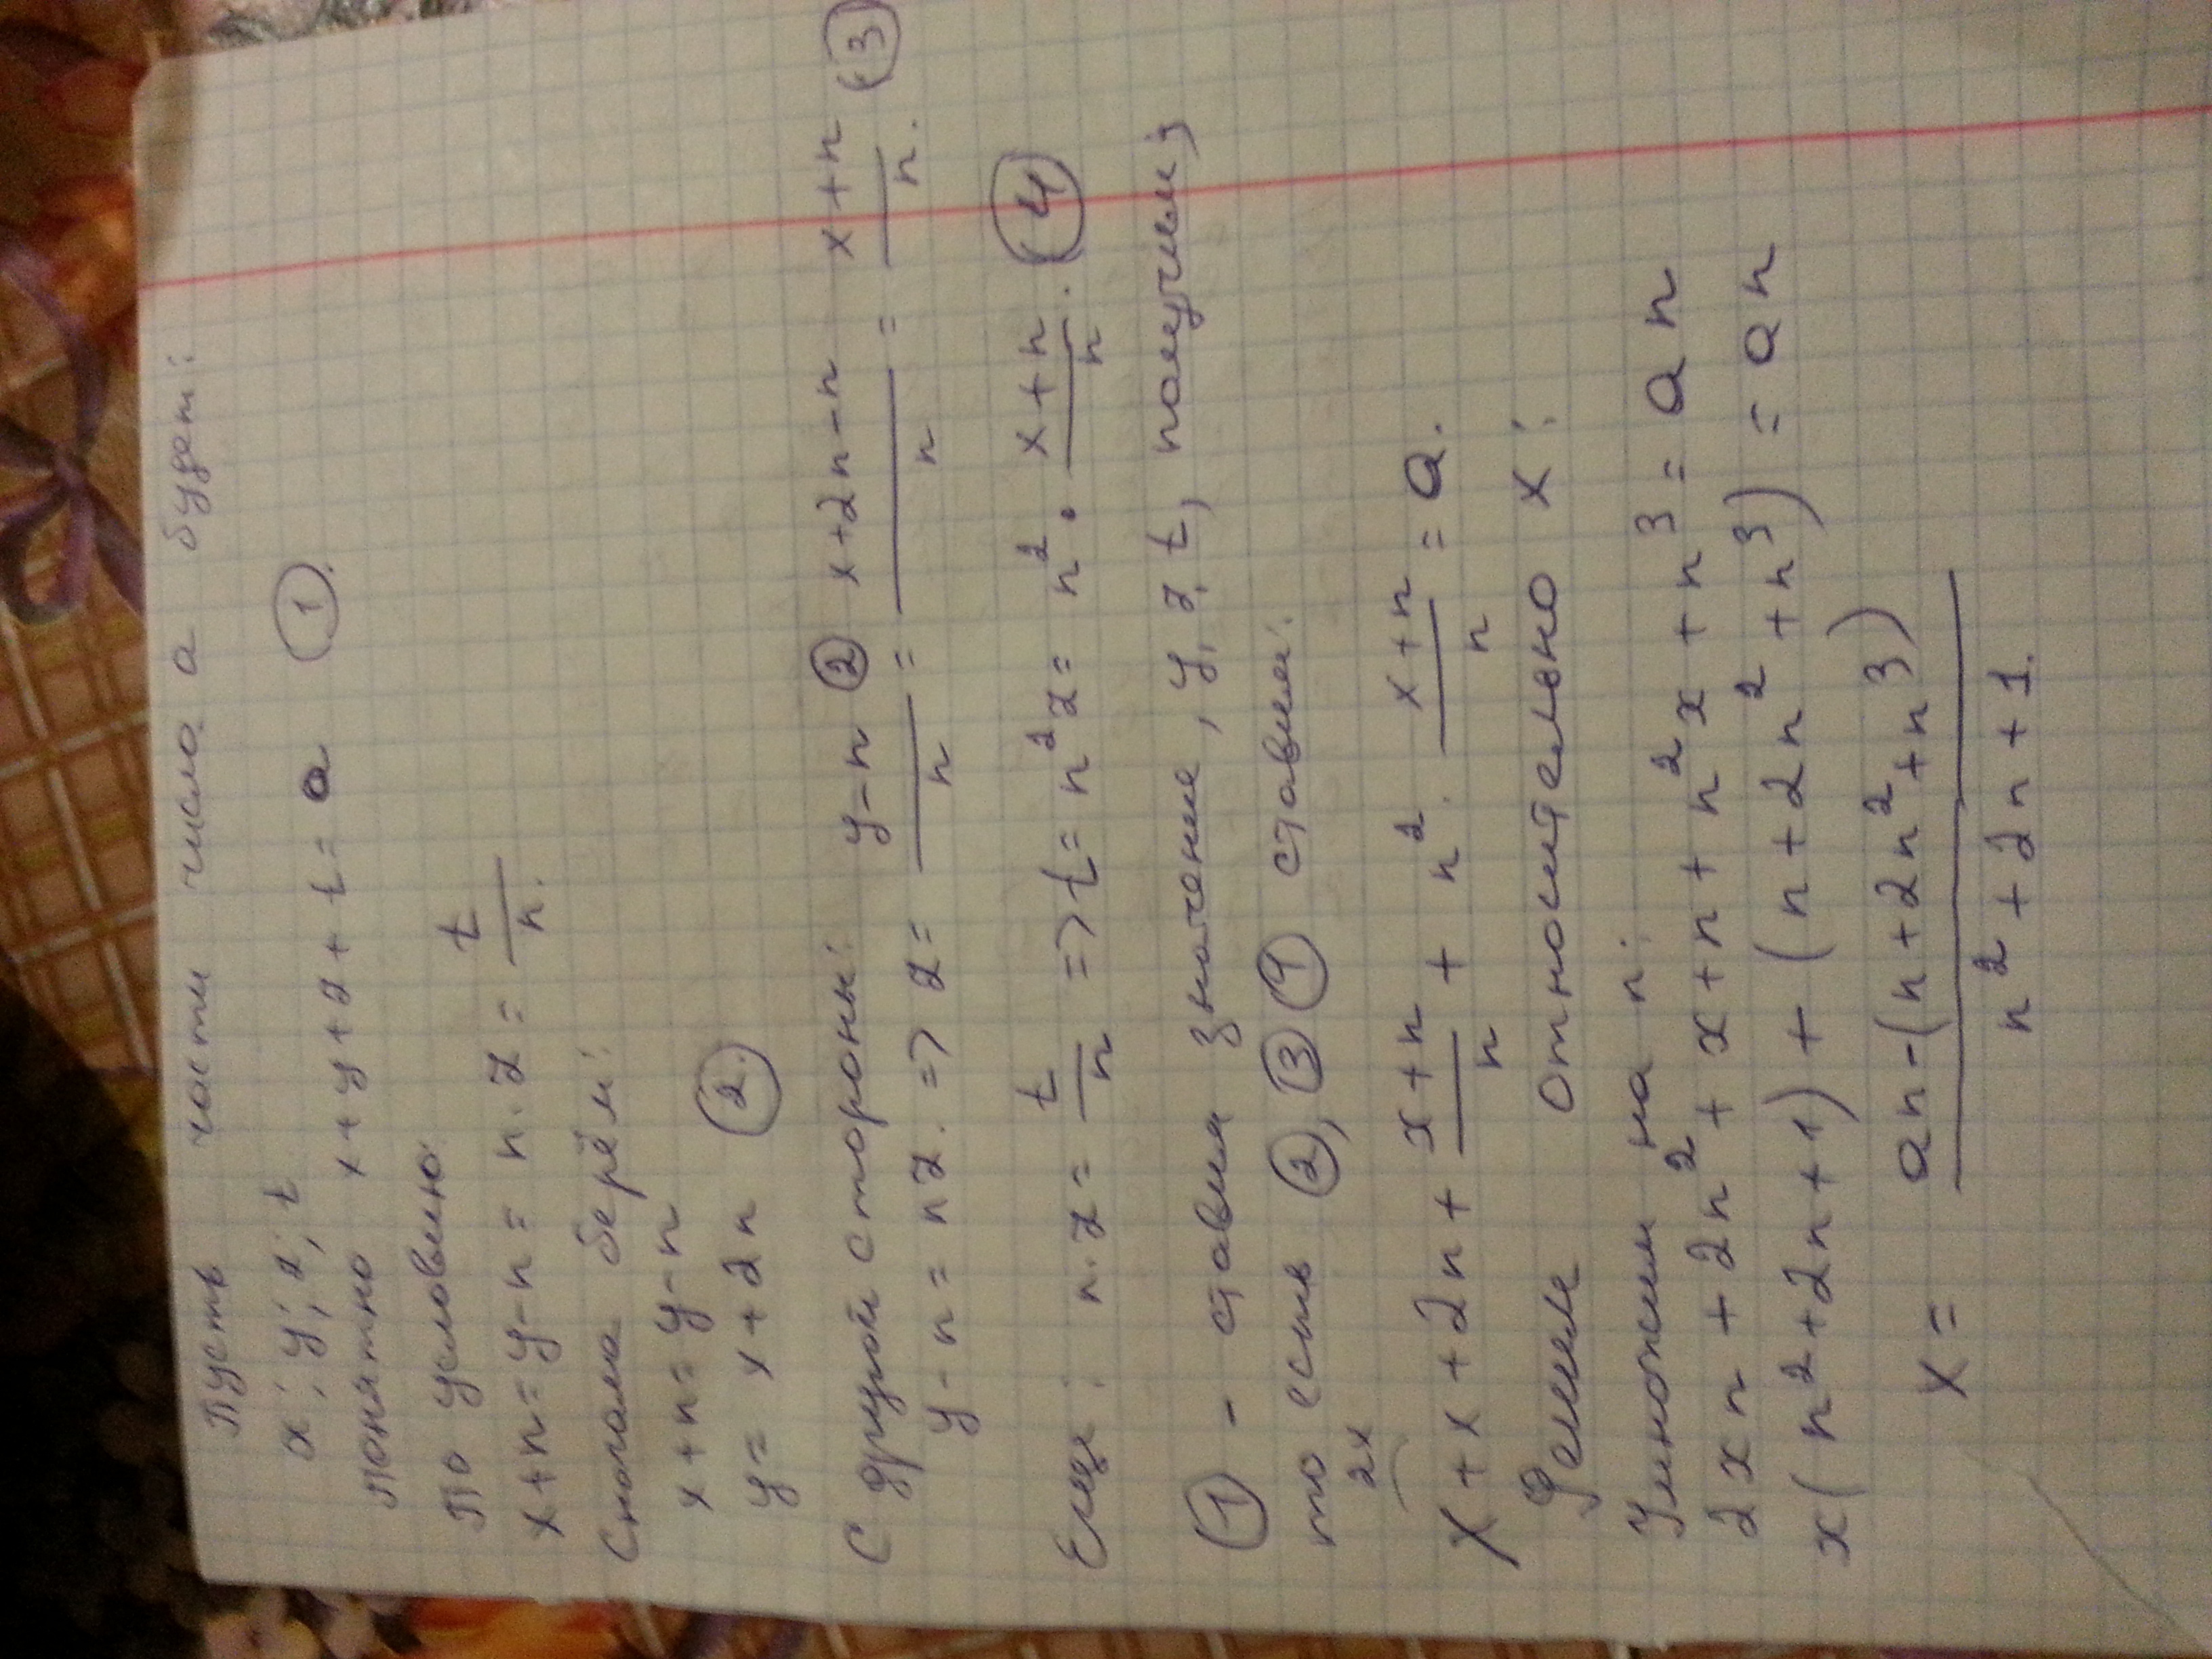 Пусть части число а будет:
x; y; z; t
понятно x+y+z+t=a (1).
По условию:
x+n=y-n=n·z=t/n.
Сначала берём:
x+n=y-n
y=x+2n (2.)
С другой стороны:
y-n=nz. => z= y-n/n (2) = x+2n-n/n = x+n/n. (3)
Еще: n·z=t/n => t=n²z=n²·x+n/n. (4)
(1) - ставим значение, y, z, t, получим;
то есть (2), (3) (4) ставим:
2x
x+x+2n+x+n/n+n²·x+n/n=a.
Решим относительно x:
Умножим на n:
2xn+2n²+x+n+n²x+n³=an
x(n²+2n+1)+(n+2n²+n³)=an
x= an-(n+2n²+n³)/n²+2n+1.